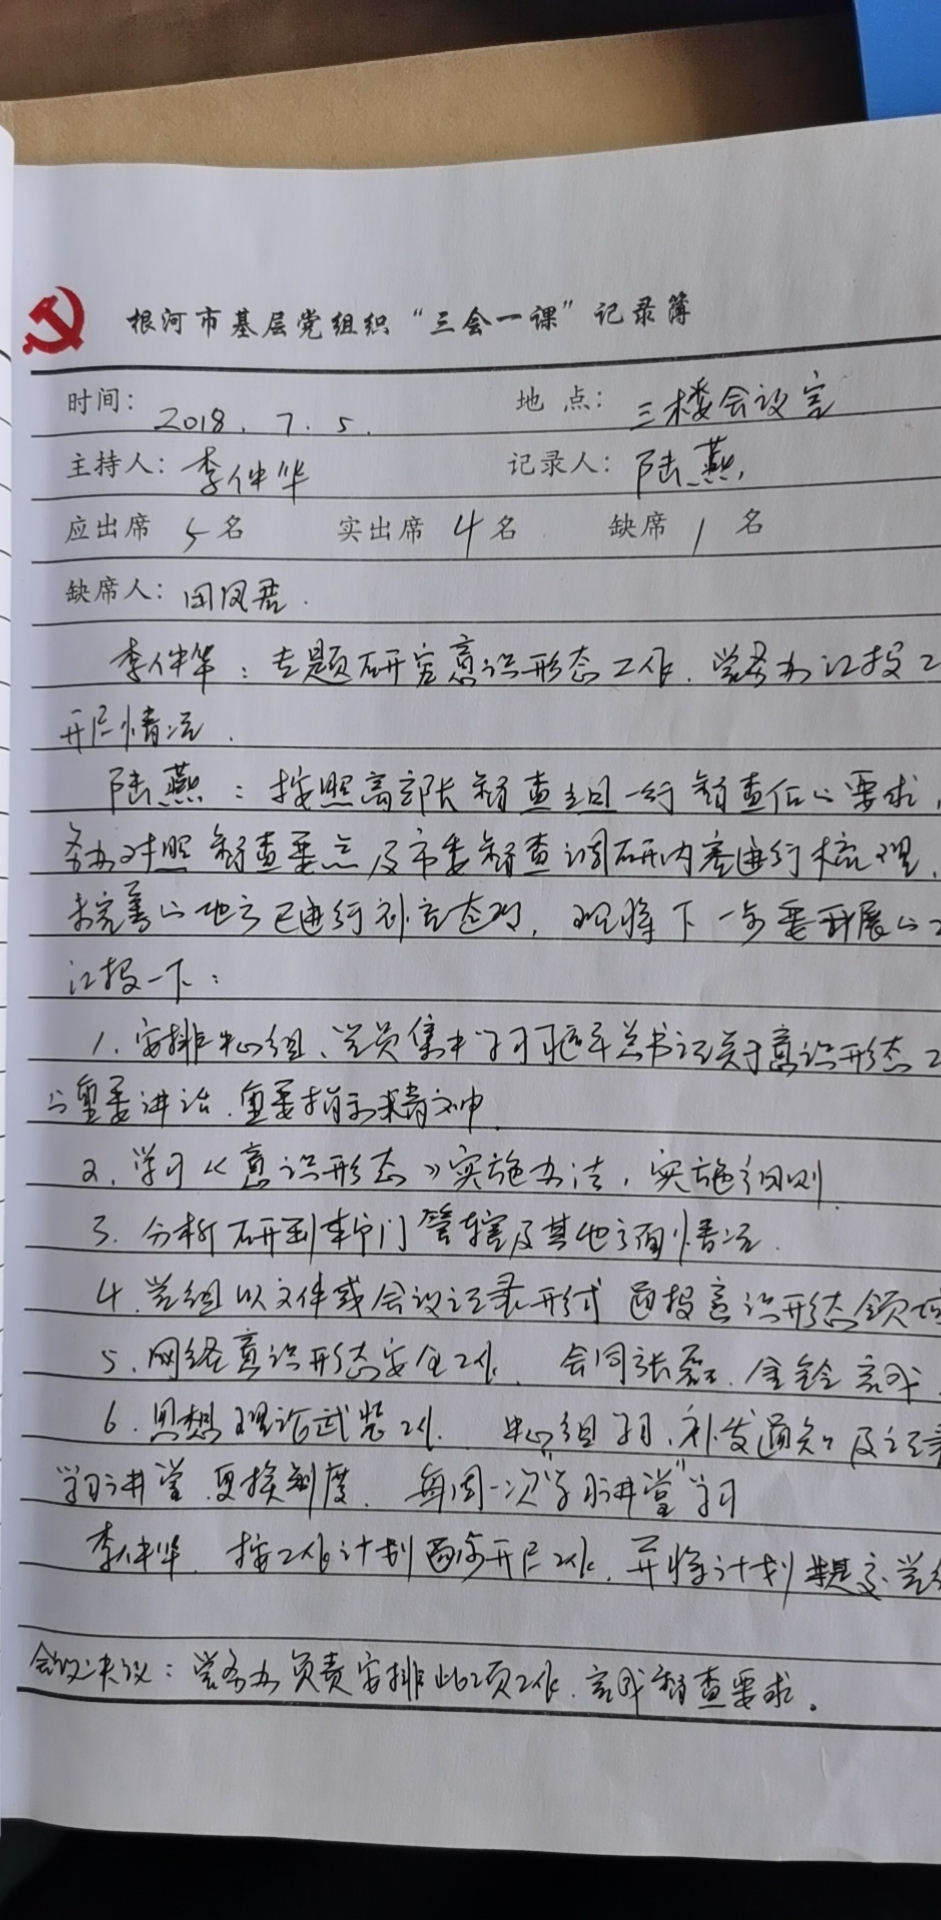 根河市基层党组织“三会一课”记录簿
时间：2018.7.5. 地点：三楼会议室
主持人：李仲华 记录人：陆燕
应出席5名 实出席4名 缺席1名
缺席人：田凤君.
李仲华：专题研究意识形态工作、党务办汇报工
开展情况.
陆燕：按照高部长督查组一行督查后的要求，
务办对照督查重点及市委督查调研内容进行梳理，
未完善的地方已进行补充 现将下一步要开展的工
汇报一下：
1.安排中心组、党员集中学习习近平总书记关于意识形态工
的重要讲话、重要指示 精神
2.学习《意识形态》实施办法，实施细则
3.分析研判本部门管辖及其他方面情况.
4.党组以文件或会议记录形式 通报意识形态领域
5.网络意识形态安全工作、会同张磊、金铃完成.
6.思想理论武装工作. 中心组学习、补发通知及记录
学习讲堂 更换制度、每周一次“学习讲堂”学习
李仲华、按工作计划逐步开展工作，并将计划提交党组
会议决议：党务办负责安排此项工作、完成督查要求。